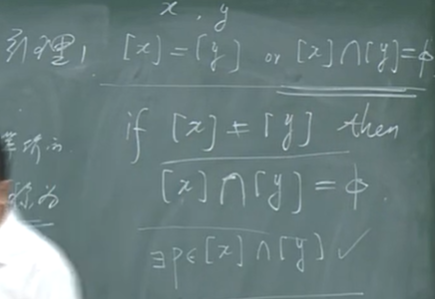 x , y
引理1 [x] = [y] or [x]∩[y]=φ
if [x] ≠ [y] then
[x]∩[y] = φ.
∃p∈[x]∩[y] ✓